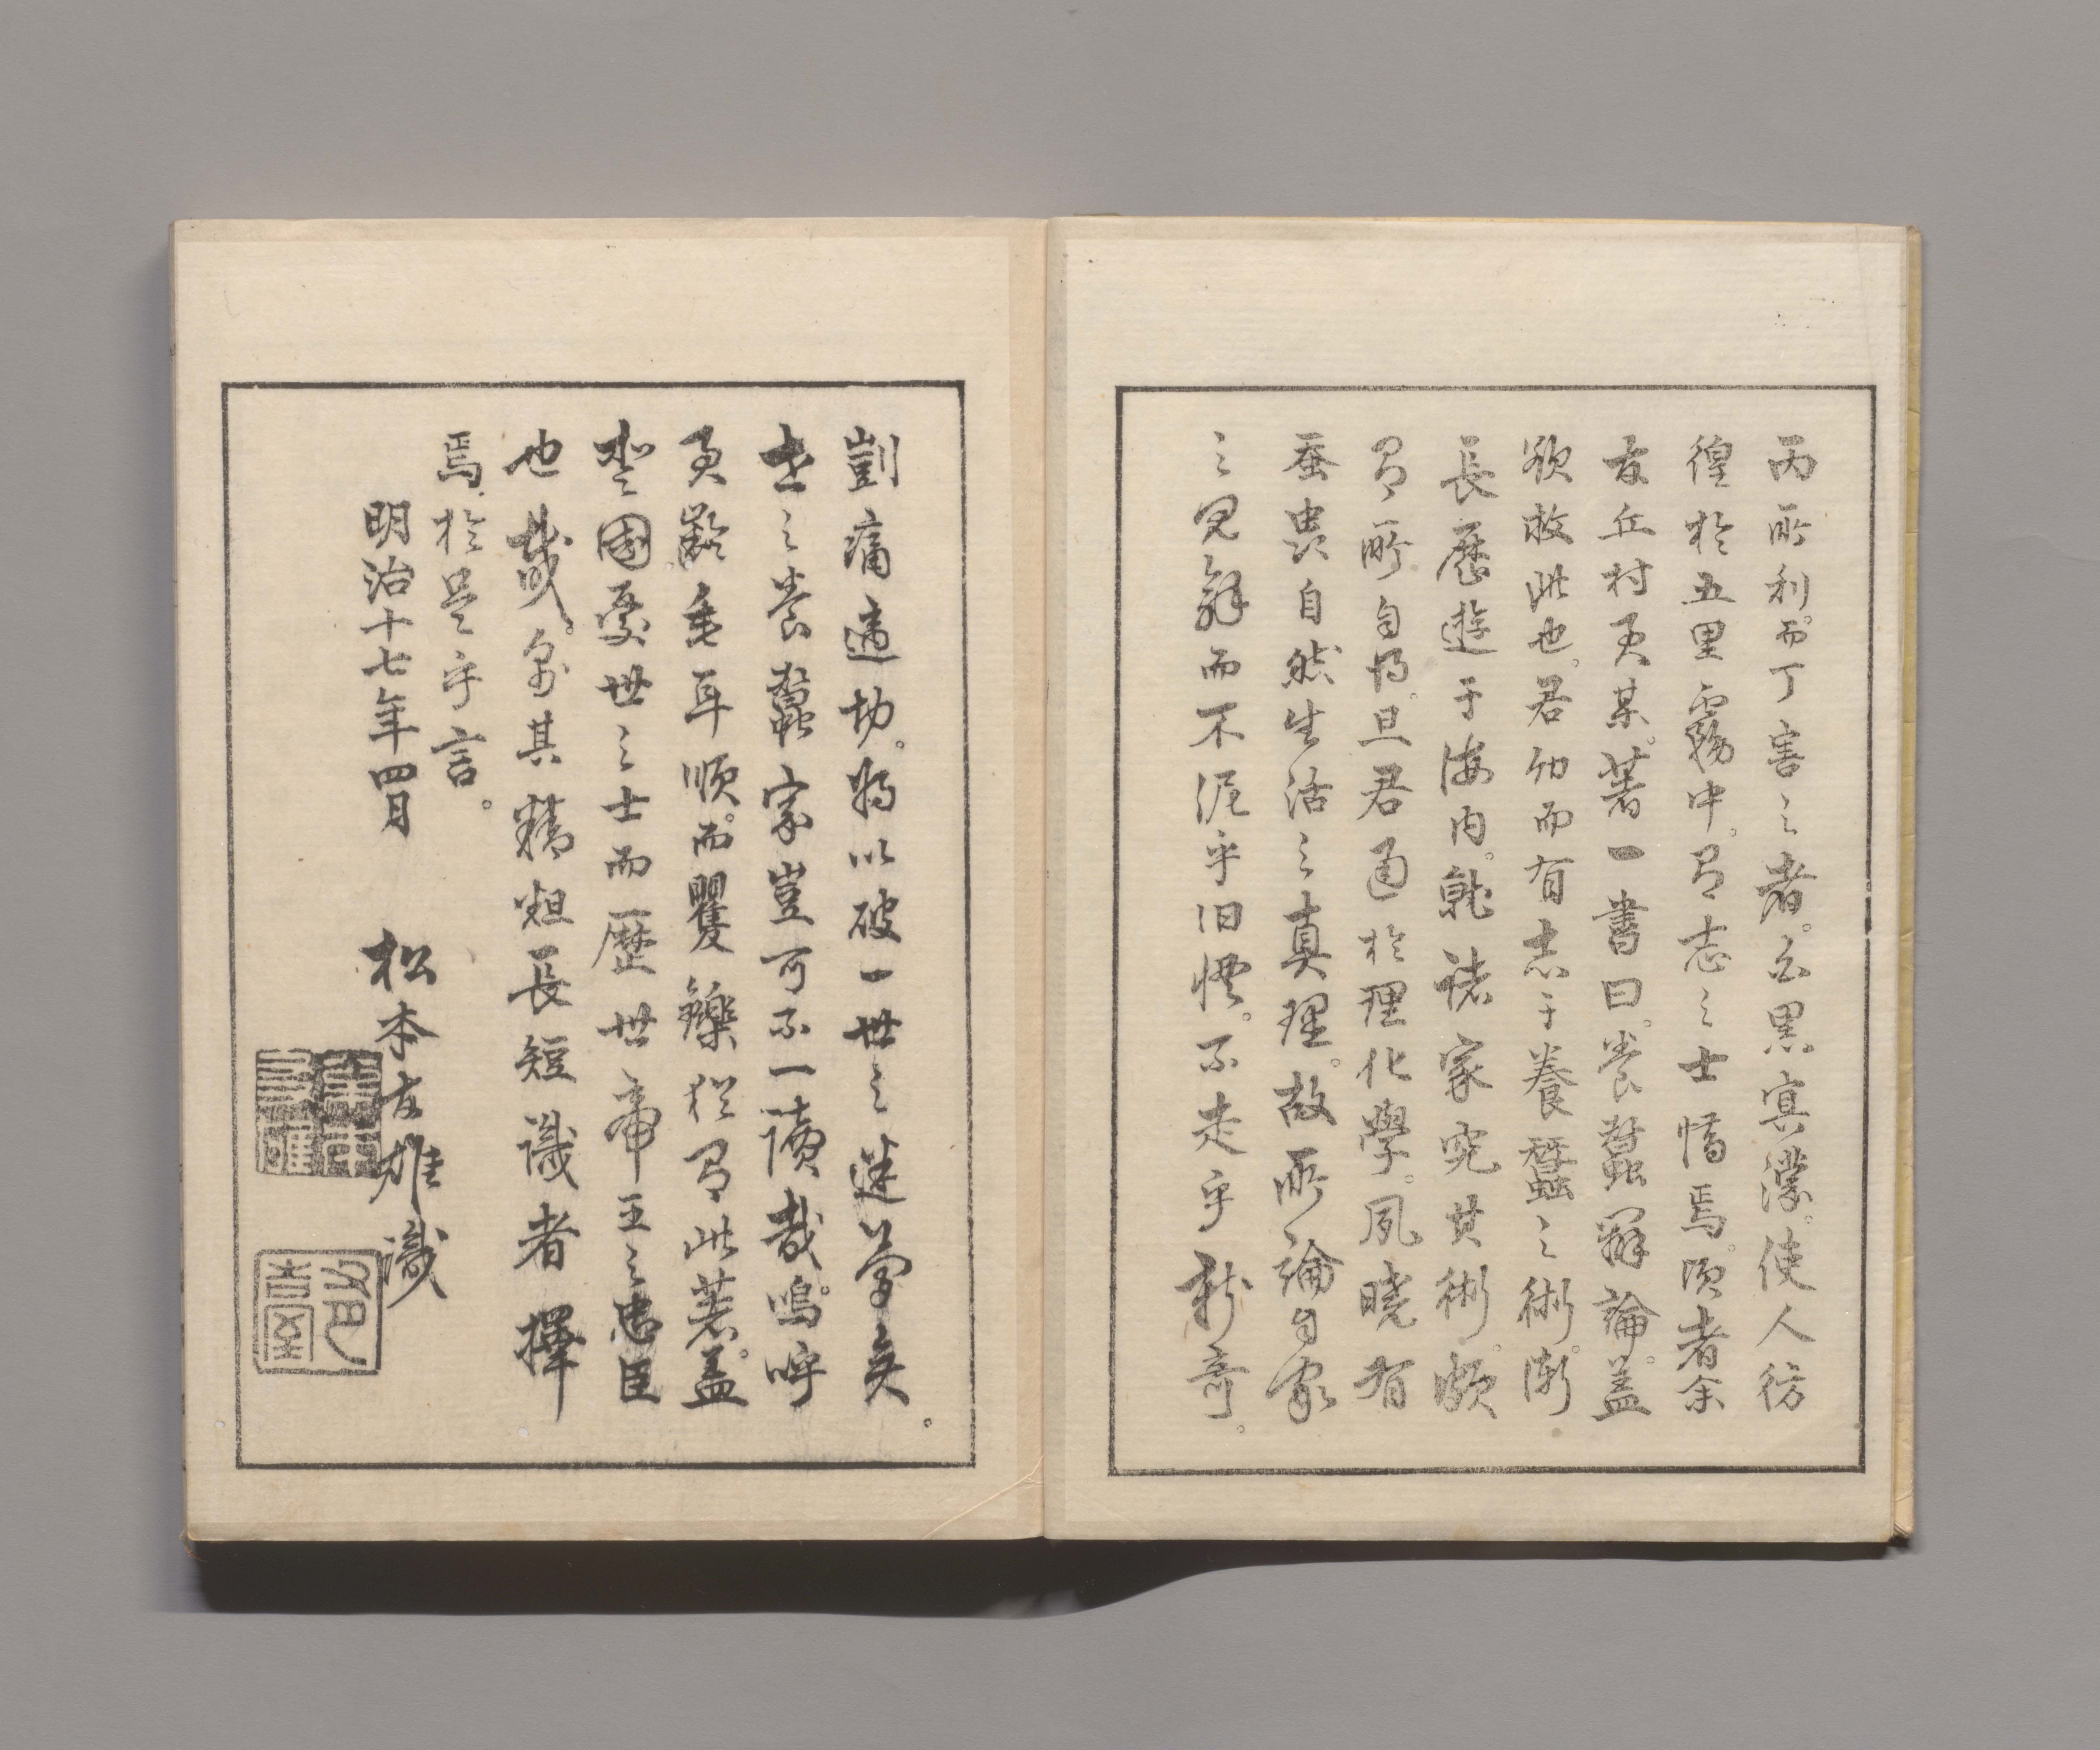 丙所利。而丁害之者。白黒冥濛。使人彷
徨於五里霧中。有志之士憾焉。頃者余
友丘村君某。著一書曰。養蚕辨論。蓋
欲救此也。君幼而有志于養蠶之術。漸
長歴遊于海内。就諸家究其術。頗
有所自得。且君通於理化學。夙曉有
蚕蟲自然生活之真理。故所論自家
之見解而不泥乎旧慣。不走乎新奇。
剴痛適切。将以破一世之迷夢矣。
世之養蠶家豈可不一讀哉。嗚呼
君齢垂耳順。而矍鑠猶有此著。蓋
愛國憂世之士而歴世帝王之忠臣
也哉。若其精粗長短識者擇
焉。於是乎言。
明治十七年四月
松本友雄識